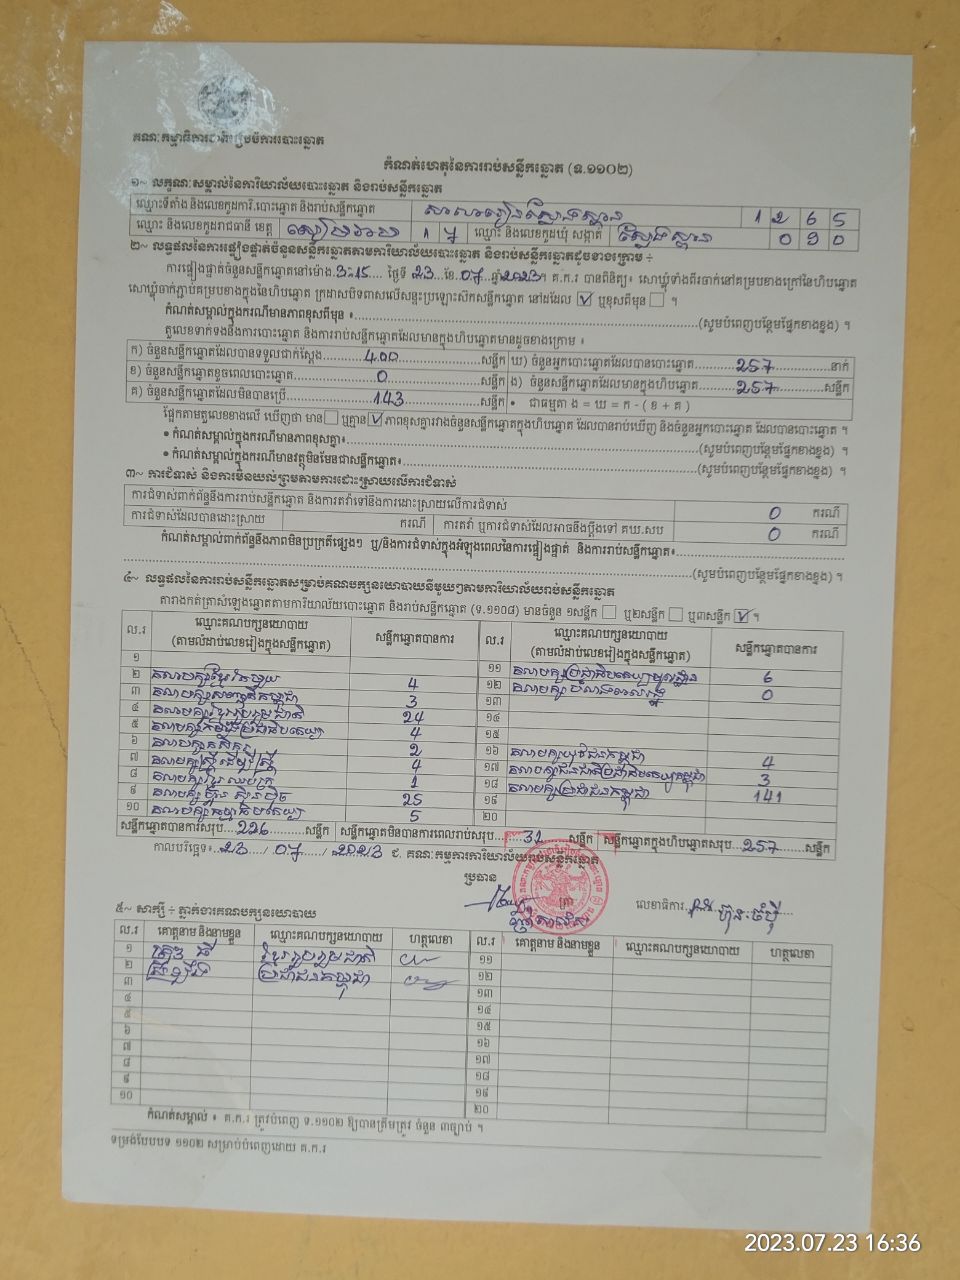 គណៈកម្មាធិការជាតិរៀបចំការបោះឆ្នោត
កំណត់ហេតុនៃការរាប់សន្លឹកឆ្នោត (ទ.១១០២)
១~ លក្ខណៈសម្គាល់នៃការិយាល័យបោះឆ្នោត និងរាប់សន្លឹកឆ្នោត
ឈ្មោះទីតាំង និងលេខកូដការិ.បោះឆ្នោត និងរាប់សន្លឹកឆ្នោត 1 2 6 5
ឈ្មោះ និងលេខកូដរាជធានី ខេត្ត សៀមរាប ១ ៧ ឈ្មោះ និងលេខកូដឃុំ សង្កាត់ ស្លែងស្ពាន
២~ លទ្ធផលនៃការផ្ទៀងផ្ទាត់ចំនួនសន្លឹកឆ្នោតតាមការិយាល័យបោះឆ្នោត និងរាប់សន្លឹកឆ្នោតដូចខាងក្រោម ÷
ការផ្ទៀងផ្ទាត់ចំនួនសន្លឹកឆ្នោតនៅម៉ោង 3:15 ថ្ងៃទី 23 ខែ 07 ឆ្នាំ 2023។ គ.ក.រ បានពិនិត្យ៖ សោឃ្លុំទាំងពីរចាក់នៅគម្របខាងក្រៅនៃហិបឆ្នោត
សោឃ្លុំចាក់ភ្ជាប់គម្របខាងក្នុងនៃហិបឆ្នោត ក្រដាសបិទពាសលើសន្ទះប្រឡោះស៊កសន្លឹកឆ្នោត នៅដដែល ☑ ឬខុសពីមុន ☐ ។
កំណត់សម្គាល់ក្នុងករណីមានភាពខុសពីមុន ៖ (សូមបំពេញបន្ថែមផ្នែកខាងខ្នង) ។
តួលេខទាក់ទងនឹងការបោះឆ្នោត និងការរាប់សន្លឹកឆ្នោតដែលមានក្នុងហិបឆ្នោតមានដូចខាងក្រោម ៖
ក) ចំនួនសន្លឹកឆ្នោតដែលបានទទួលជាក់ស្ដែង 400 សន្លឹក ឃ) ចំនួនអ្នកបោះឆ្នោតដែលបានបោះឆ្នោត 257 នាក់
ខ) ចំនួនសន្លឹកឆ្នោតខូចពេលបោះឆ្នោត 0 សន្លឹក ង) ចំនួនសន្លឹកឆ្នោតដែលមានក្នុងហិបឆ្នោត 257 សន្លឹក
គ) ចំនួនសន្លឹកឆ្នោតដែលមិនបានប្រើ 143 សន្លឹក • ជាធម្មតា ង = ឃ = ក - ( ខ + គ )
ផ្អែកតាមតួលេខខាងលើ ឃើញថា មាន ☐ ឬគ្មាន ☑ ភាពខុសគ្នារវាងចំនួនសន្លឹកឆ្នោតក្នុងហិបឆ្នោត ដែលបានរាប់ឃើញ និងចំនួនអ្នកបោះឆ្នោត ដែលបានបោះឆ្នោត ។
• កំណត់សម្គាល់ក្នុងករណីមានភាពខុសគ្នា៖ (សូមបំពេញបន្ថែមផ្នែកខាងខ្នង) ។
• កំណត់សម្គាល់ក្នុងករណីមានវត្ថុមិនមែនជាសន្លឹកឆ្នោត៖ (សូមបំពេញបន្ថែមផ្នែកខាងខ្នង) ។
៣~ ការជំទាស់ និងការមិនយល់ព្រមតាមការដោះស្រាយលើការជំទាស់
ការជំទាស់ពាក់ព័ន្ធនឹងការរាប់សន្លឹកឆ្នោត និងការតវ៉ាទៅនឹងការដោះស្រាយលើការជំទាស់ 0 ករណី
ការជំទាស់ដែលបានដោះស្រាយ ករណី ការតវ៉ា ឬការជំទាស់ដែលអាចនឹងប្ដឹងទៅ គឃ.សប 0 ករណី
កំណត់សម្គាល់ពាក់ព័ន្ធនឹងភាពមិនប្រក្រតីផ្សេងៗ ឬ/និងការជំទាស់ក្នុងអំឡុងពេលនៃការផ្ទៀងផ្ទាត់ និងការរាប់សន្លឹកឆ្នោត៖
(សូមបំពេញបន្ថែមផ្នែកខាងខ្នង) ។
៤~ លទ្ធផលនៃការរាប់សន្លឹកឆ្នោតសម្រាប់គណបក្សនយោបាយនីមួយៗតាមការិយាល័យរាប់សន្លឹកឆ្នោត
តារាងកត់ត្រាសំឡេងឆ្នោតតាមការិយាល័យបោះឆ្នោត និងរាប់សន្លឹកឆ្នោត (ទ.១១០៨) មានចំនួន ១សន្លឹក ☐ ឬ២សន្លឹក ☐ ឬ៣សន្លឹក ☑ ។
ល.រ ឈ្មោះគណបក្សនយោបាយ (តាមលំដាប់លេខរៀងក្នុងសន្លឹកឆ្នោត) សន្លឹកឆ្នោតបានការ ល.រ ឈ្មោះគណបក្សនយោបាយ (តាមលំដាប់លេខរៀងក្នុងសន្លឹកឆ្នោត) សន្លឹកឆ្នោតបានការ
១
២ 4 ១១ 6
៣ 3 ១២ 0
៤ គណបក្សខ្មែររួបរួមជាតិ 24 ១៣
៥ 4 ១៤
៦ គណបក្សកសិករ 2 ១៥
៧ គណបក្សស្ត្រីដើម្បីស្ត្រី 4 ១៦ គណបក្សយុវជនកម្ពុជា 4
៨ 1 ១៧ 3
៩ 25 ១៨ គណបក្សប្រជាជនកម្ពុជា 141
១០ 5 ១៩
២០
សន្លឹកឆ្នោតបានការសរុប 226 សន្លឹក សន្លឹកឆ្នោតមិនបានការពេលរាប់សរុប 31 សន្លឹក សន្លឹកឆ្នោតក្នុងហិបឆ្នោតសរុប 257 សន្លឹក
កាលបរិច្ឆេទ៖ 23 / 07 / 2023 ជ. គណៈកម្មការការិយាល័យរាប់សន្លឹកឆ្នោត
ប្រធាន
លេខាធិការ
៥~ សាក្សី ÷ ភ្នាក់ងារគណបក្សនយោបាយ
ល.រ គោត្តនាម និងនាមខ្លួន ឈ្មោះគណបក្សនយោបាយ ហត្ថលេខា ល.រ គោត្តនាម និងនាមខ្លួន ឈ្មោះគណបក្សនយោបាយ ហត្ថលេខា
១ ខ្មែររួបរួមជាតិ ១១
២ ប្រជាជនកម្ពុជា ១២
៣ ១៣
៤ ១៤
៥ ១៥
៦ ១៦
៧ ១៧
៨ ១៨
៩ ១៩
១០ ២០
កំណត់សម្គាល់ ៖ គ.ក.រ ត្រូវបំពេញ ទ.១១០២ ឱ្យបានត្រឹមត្រូវ ចំនួន ៣ច្បាប់ ។
ទម្រង់បែបបទ ១១០២ សម្រាប់បំពេញដោយ គ.ក.រ
2023.07.23 16:36